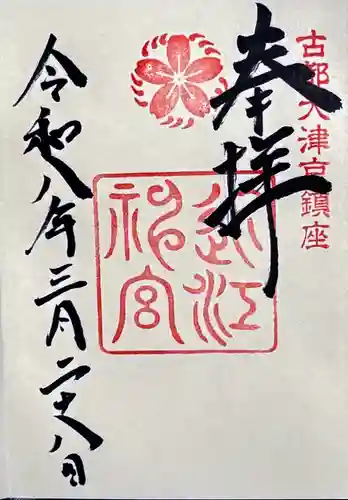 古都大津京鎮座
奉拝
近江神宮
令和八年三月二十八日